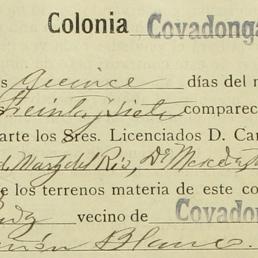 Colonia Covadonga
s quince días del m
treinta y siete comparece
arte los Sres. Licenciados D. Car
Martz del Rio, Dr
e los terrenos materia de este co
vecino de Covado
Blanco